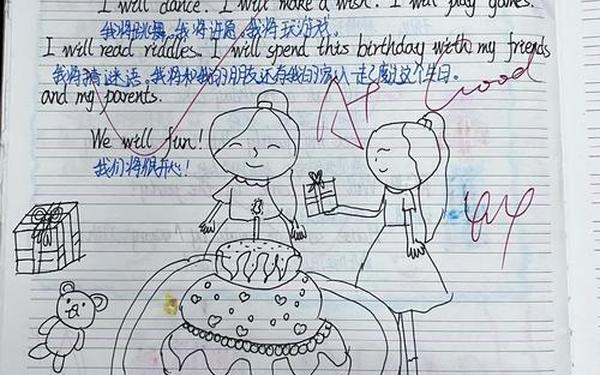 I will dance. I will make a wish. I will play games.
我将跳舞。我将许愿。我将玩游戏。
I will read riddles. I will spend this birthday with my friends
我将猜谜语。我将和我的朋友还有我的家人一起度过这个生日。
and my parents.
A+ Good
We will fun!
我们将很开心!